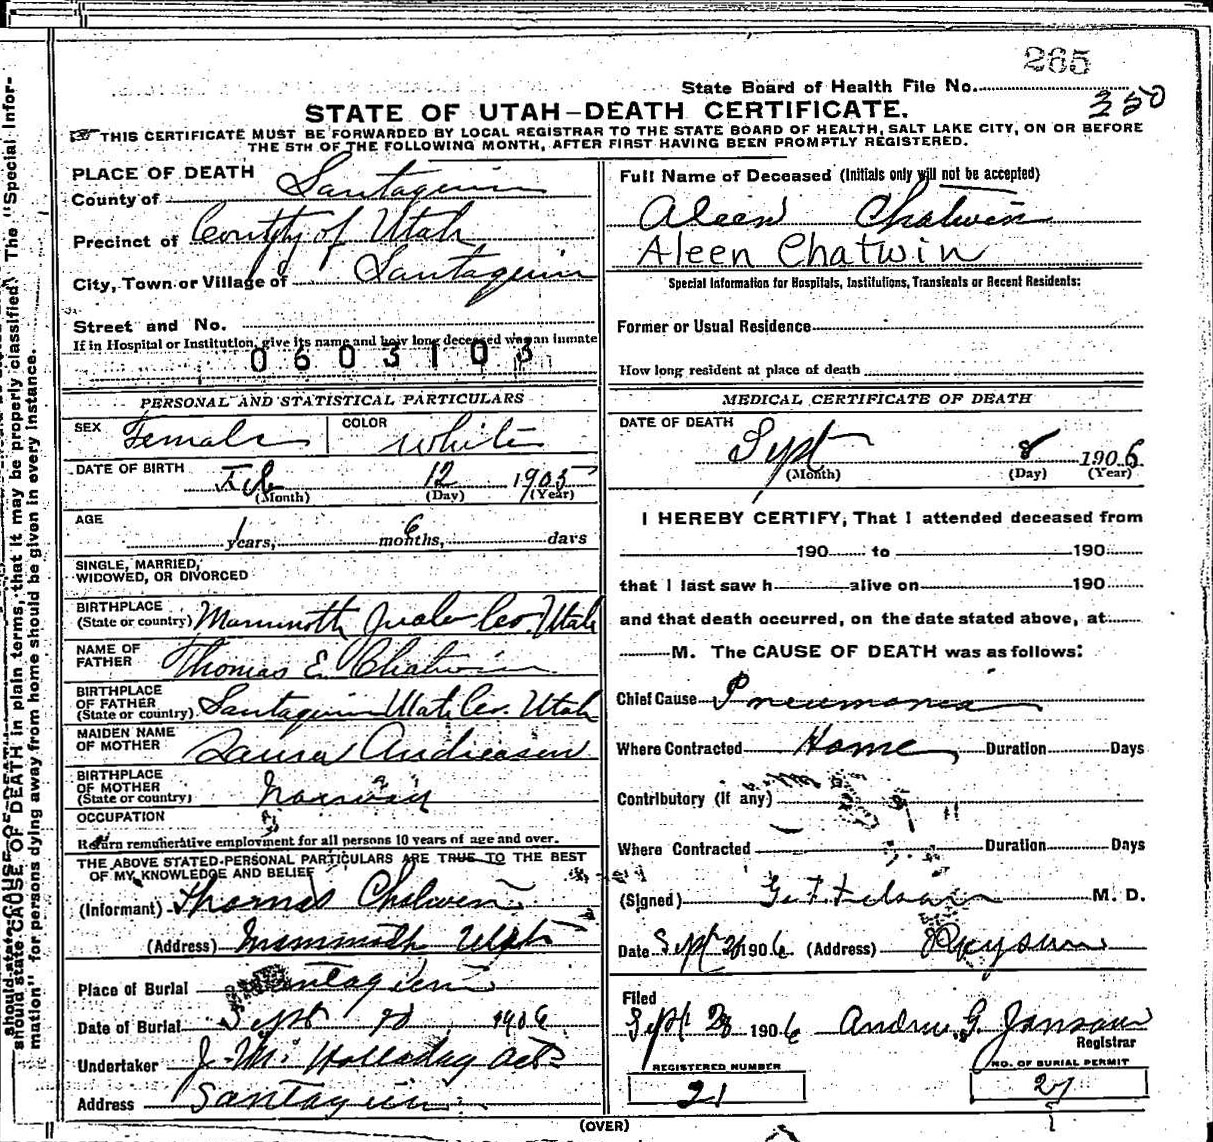 265
State Board of Health File No. 350
STATE OF UTAH—DEATH CERTIFICATE.
THIS CERTIFICATE MUST BE FORWARDED BY LOCAL REGISTRAR TO THE STATE BOARD OF HEALTH, SALT LAKE CITY, ON OR BEFORE
THE 5TH OF THE FOLLOWING MONTH, AFTER FIRST HAVING BEEN PROMPTLY REGISTERED.
PLACE OF DEATH
County of Santaquin
Precinct of County of Utah
City, Town or Village of Santaquin
Street and No.
If in Hospital or Institution, give its name and how long deceased was an inmate
0603103
PERSONAL AND STATISTICAL PARTICULARS
SEX Female COLOR White
DATE OF BIRTH Feb 12 1905
(Month) (Day) (Year)
AGE 1 years, 6 months, days
SINGLE, MARRIED,
WIDOWED, OR DIVORCED
BIRTHPLACE
(State or country) Mammoth Juab Co. Utah
NAME OF
FATHER Thomas E. Chatwin
BIRTHPLACE
OF FATHER
(State or country) Santaquin Utah Co. Utah
MAIDEN NAME
OF MOTHER Laura Andreasen
BIRTHPLACE
OF MOTHER
(State or country) Norway
OCCUPATION
Return remunerative employment for all persons 10 years of age and over.
THE ABOVE STATED PERSONAL PARTICULARS ARE TRUE TO THE BEST
OF MY KNOWLEDGE AND BELIEF
(Informant) Thomas Chatwin
(Address) Mammoth Utah
Place of Burial Santaquin
Date of Burial Sept 1906
Undertaker J. M. Holladay
Address Santaquin
Full Name of Deceased (Initials only will not be accepted)
Aleen Chatwin
Aleen Chatwin
Special Information for Hospitals, Institutions, Transients or Recent Residents:
Former or Usual Residence
How long resident at place of death
MEDICAL CERTIFICATE OF DEATH
DATE OF DEATH
Sept 8 1906
(Month) (Day) (Year)
I HEREBY CERTIFY, That I attended deceased from
190 to 190
that I last saw h alive on 190
and that death occurred, on the date stated above, at
M. The CAUSE OF DEATH was as follows:
Chief Cause Pneumonia
Where Contracted Home Duration Days
Contributory (if any)
Where Contracted Duration Days
(Signed) M. D.
Date Sept 1906 (Address) Payson
Filed
Sept 28 1906 Andrew G. Janson
Registrar
REGISTERED NUMBER
21
NO. OF BURIAL PERMIT
21
(OVER)
should state CAUSE OF DEATH in plain terms, that it may be properly classified. The "Special Infor-
mation" for persons dying away from home should be given in every instance.